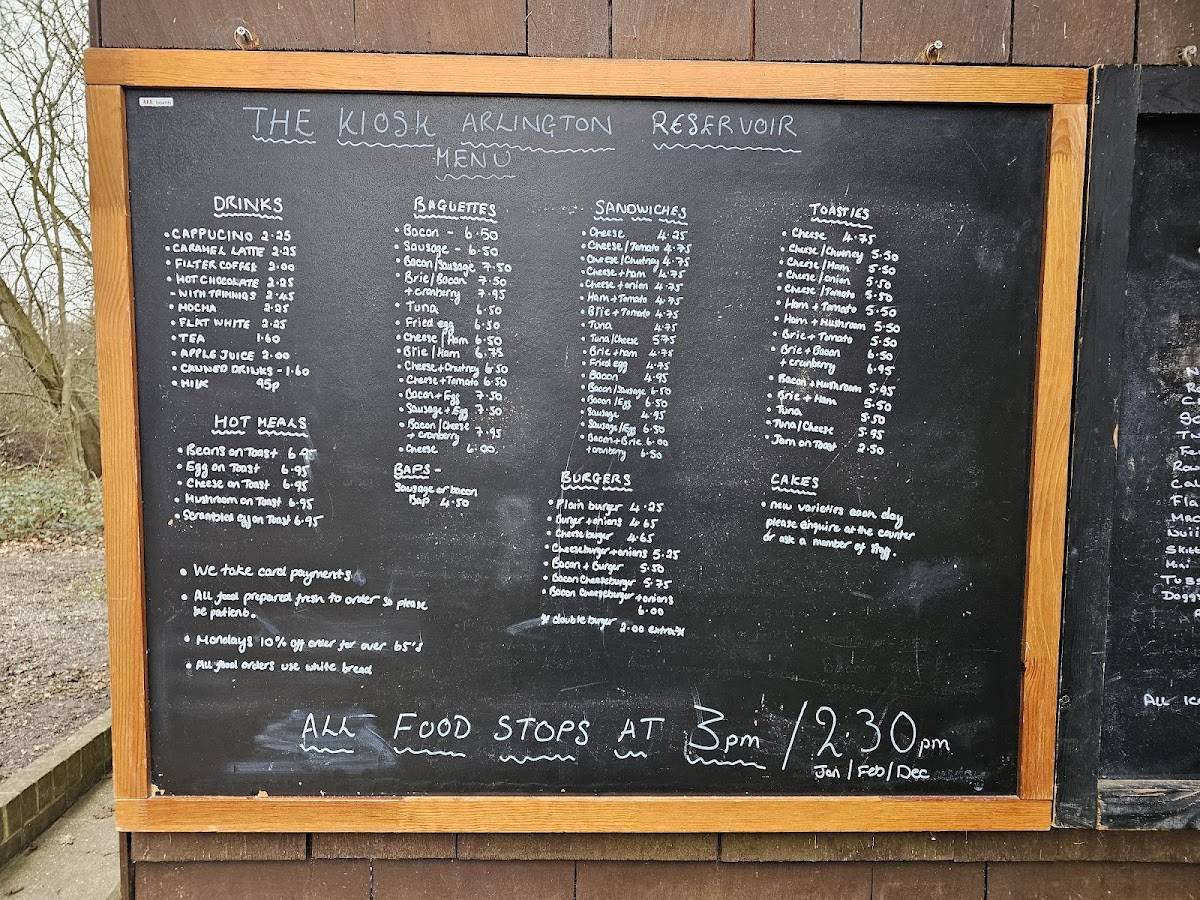 THE KIOSK ARLINGTON RESERVOIR
MENU
DRINKS
• CAPPUCINO 2.25
• CARAMEL LATTE 2.25
• FILTER COFFEE 2.00
• HOT CHOCOLATE 2.25
- WITH TRIMMIGS 2.45
• MOCHA 2.25
• FLAT WHITE 2.25
• TEA 1.60
• APPLE JUICE 2.00
• CANNED DRINKS - 1.60
• MILK 95p
HOT MEALS
• Beans on Toast 6.95
• Egg on Toast 6.95
• Cheese on Toast 6.95
• Mushroom on Toast 6.95
• Scrambled egg on Toast 6.95
BAGUETTES
• Bacon - 6.50
• Sausage - 6.50
• Bacon/Sausage 7.50
• Brie/Bacon 7.50
+ cranberry 7.95
• Tuna 6.50
• Fried egg 6.50
• Cheese/Ham 6.50
• Brie/Ham 6.75
• Cheese+Chutney 6.50
• Cheese+Tomato 6.50
• Bacon+Egg 7.50
• Sausage+Egg 7.50
• Bacon/Cheese
+ cranberry 7.95
• Cheese 6.00
BAPS -
Sausage or bacon
Bap 4.50
SANDWICHES
• Cheese 4.25
• Cheese/Tomato 4.75
• Cheese/Chutney 4.75
• Cheese+ham 4.75
• Cheese+onion 4.75
• Ham+Tomato 4.75
• Brie+Tomato 4.75
• Tuna 4.75
• Tuna/Cheese 5.75
• Brie+ham 4.75
• Fried egg 4.75
• Bacon 4.95
• Bacon/Sausage 6.50
• Bacon/Egg 6.50
• Sausage 4.95
• Sausage/Egg 6.50
• Bacon+Brie 6.00
+cranberry 6.50
BURGERS
• Plain burger 4.25
• Burger+onions 4.65
• Cheeseburger 4.65
• Cheeseburger+onions 5.25
• Bacon+Burger 5.50
• Bacon Cheeseburger 5.75
• Bacon Cheeseburger+onions
6.00
* double burger 2.00 extra *
TOASTIES
• Cheese 4.75
• Cheese/Chutney 5.50
• Cheese/Ham 5.50
• Cheese/onion 5.50
• Cheese/Tomato 5.50
• Ham+Tomato 5.50
• Ham+Mushroom 5.50
• Brie+Tomato 5.50
• Brie+Bacon 6.50
+ cranberry 6.95
• Bacon+Mushroom 5.95
• Brie+Ham 5.50
• Tuna 5.50
• Tuna/Cheese 5.95
• Jam on Toast 2.50
CAKES
• new varieties each day
please enquire at the counter
or ask a member of staff.
• We take card payments
• All food prepared fresh to order so please
be patient.
• Mondays 10% off order for over 65's
• All food orders use white bread
ALL FOOD STOPS AT 3pm / 2.30pm
Jan/Feb/Dec